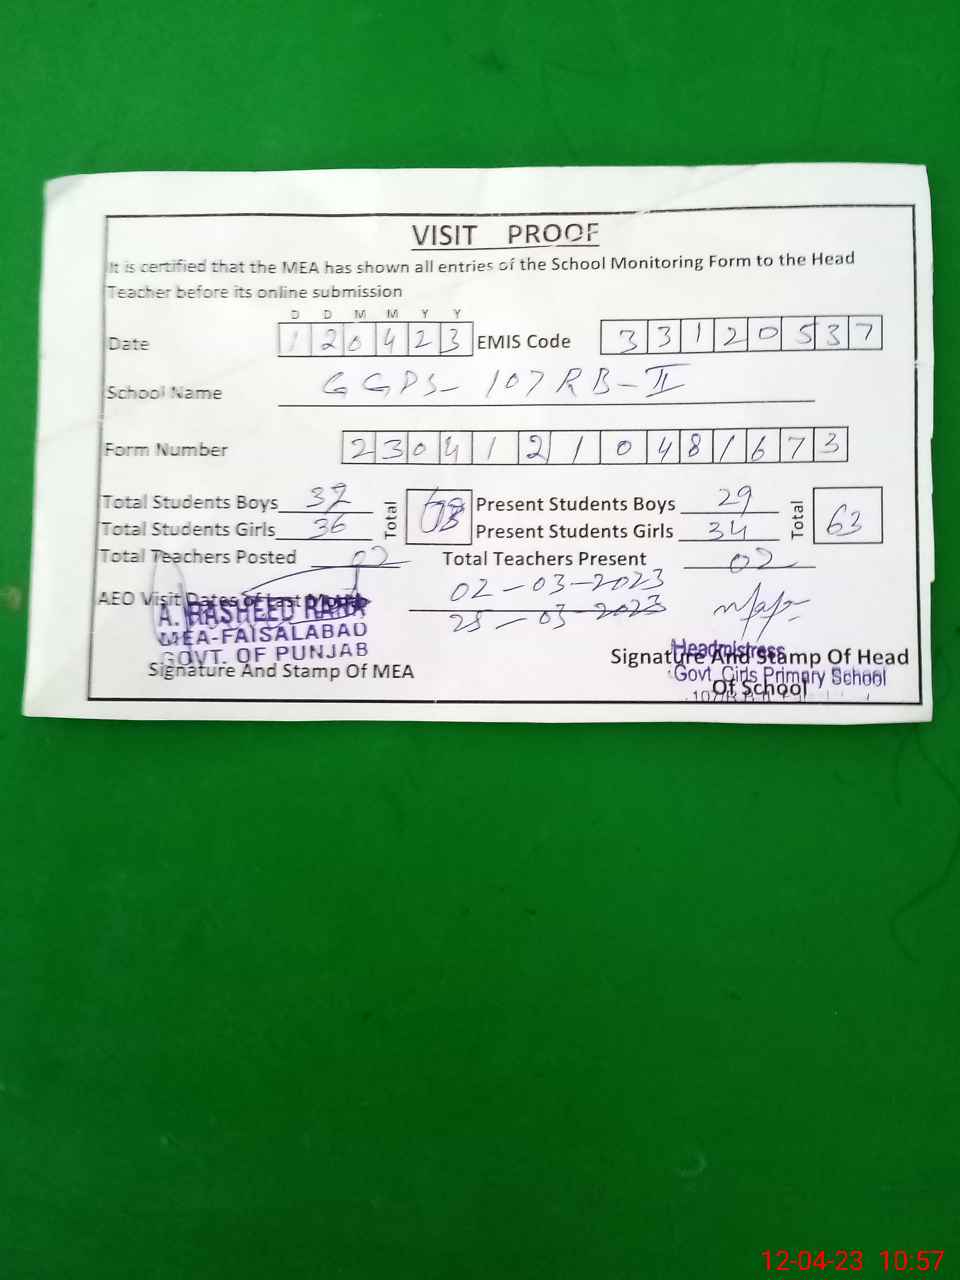 VISIT PROOF
It is certified that the MEA has shown all entries of the School Monitoring Form to the Head
Teacher before its online submission
D D M M Y Y
Date 1 2 0 4 2 3 EMIS Code 3 3 1 2 0 5 3 7
School Name GGPS- 107 RB-II
Form Number 2 3 0 4 1 2 1 0 4 8 1 6 7 3
Total Students Boys Total Present Students Boys 29 Total 63
Total Students Girls 36 Present Students Girls 34
Total Teachers Posted 02 Total Teachers Present 02
AEO Visit Dates of Last Month 02-03-2023
28-03-2023
A. RASHEED RANA
MEA-FAISALABAD
GOVT. OF PUNJAB
Signature And Stamp Of MEA
Headmistress
Signature And Stamp Of Head
Govt. Girls Primary School
Of School
12-04-23 10:57